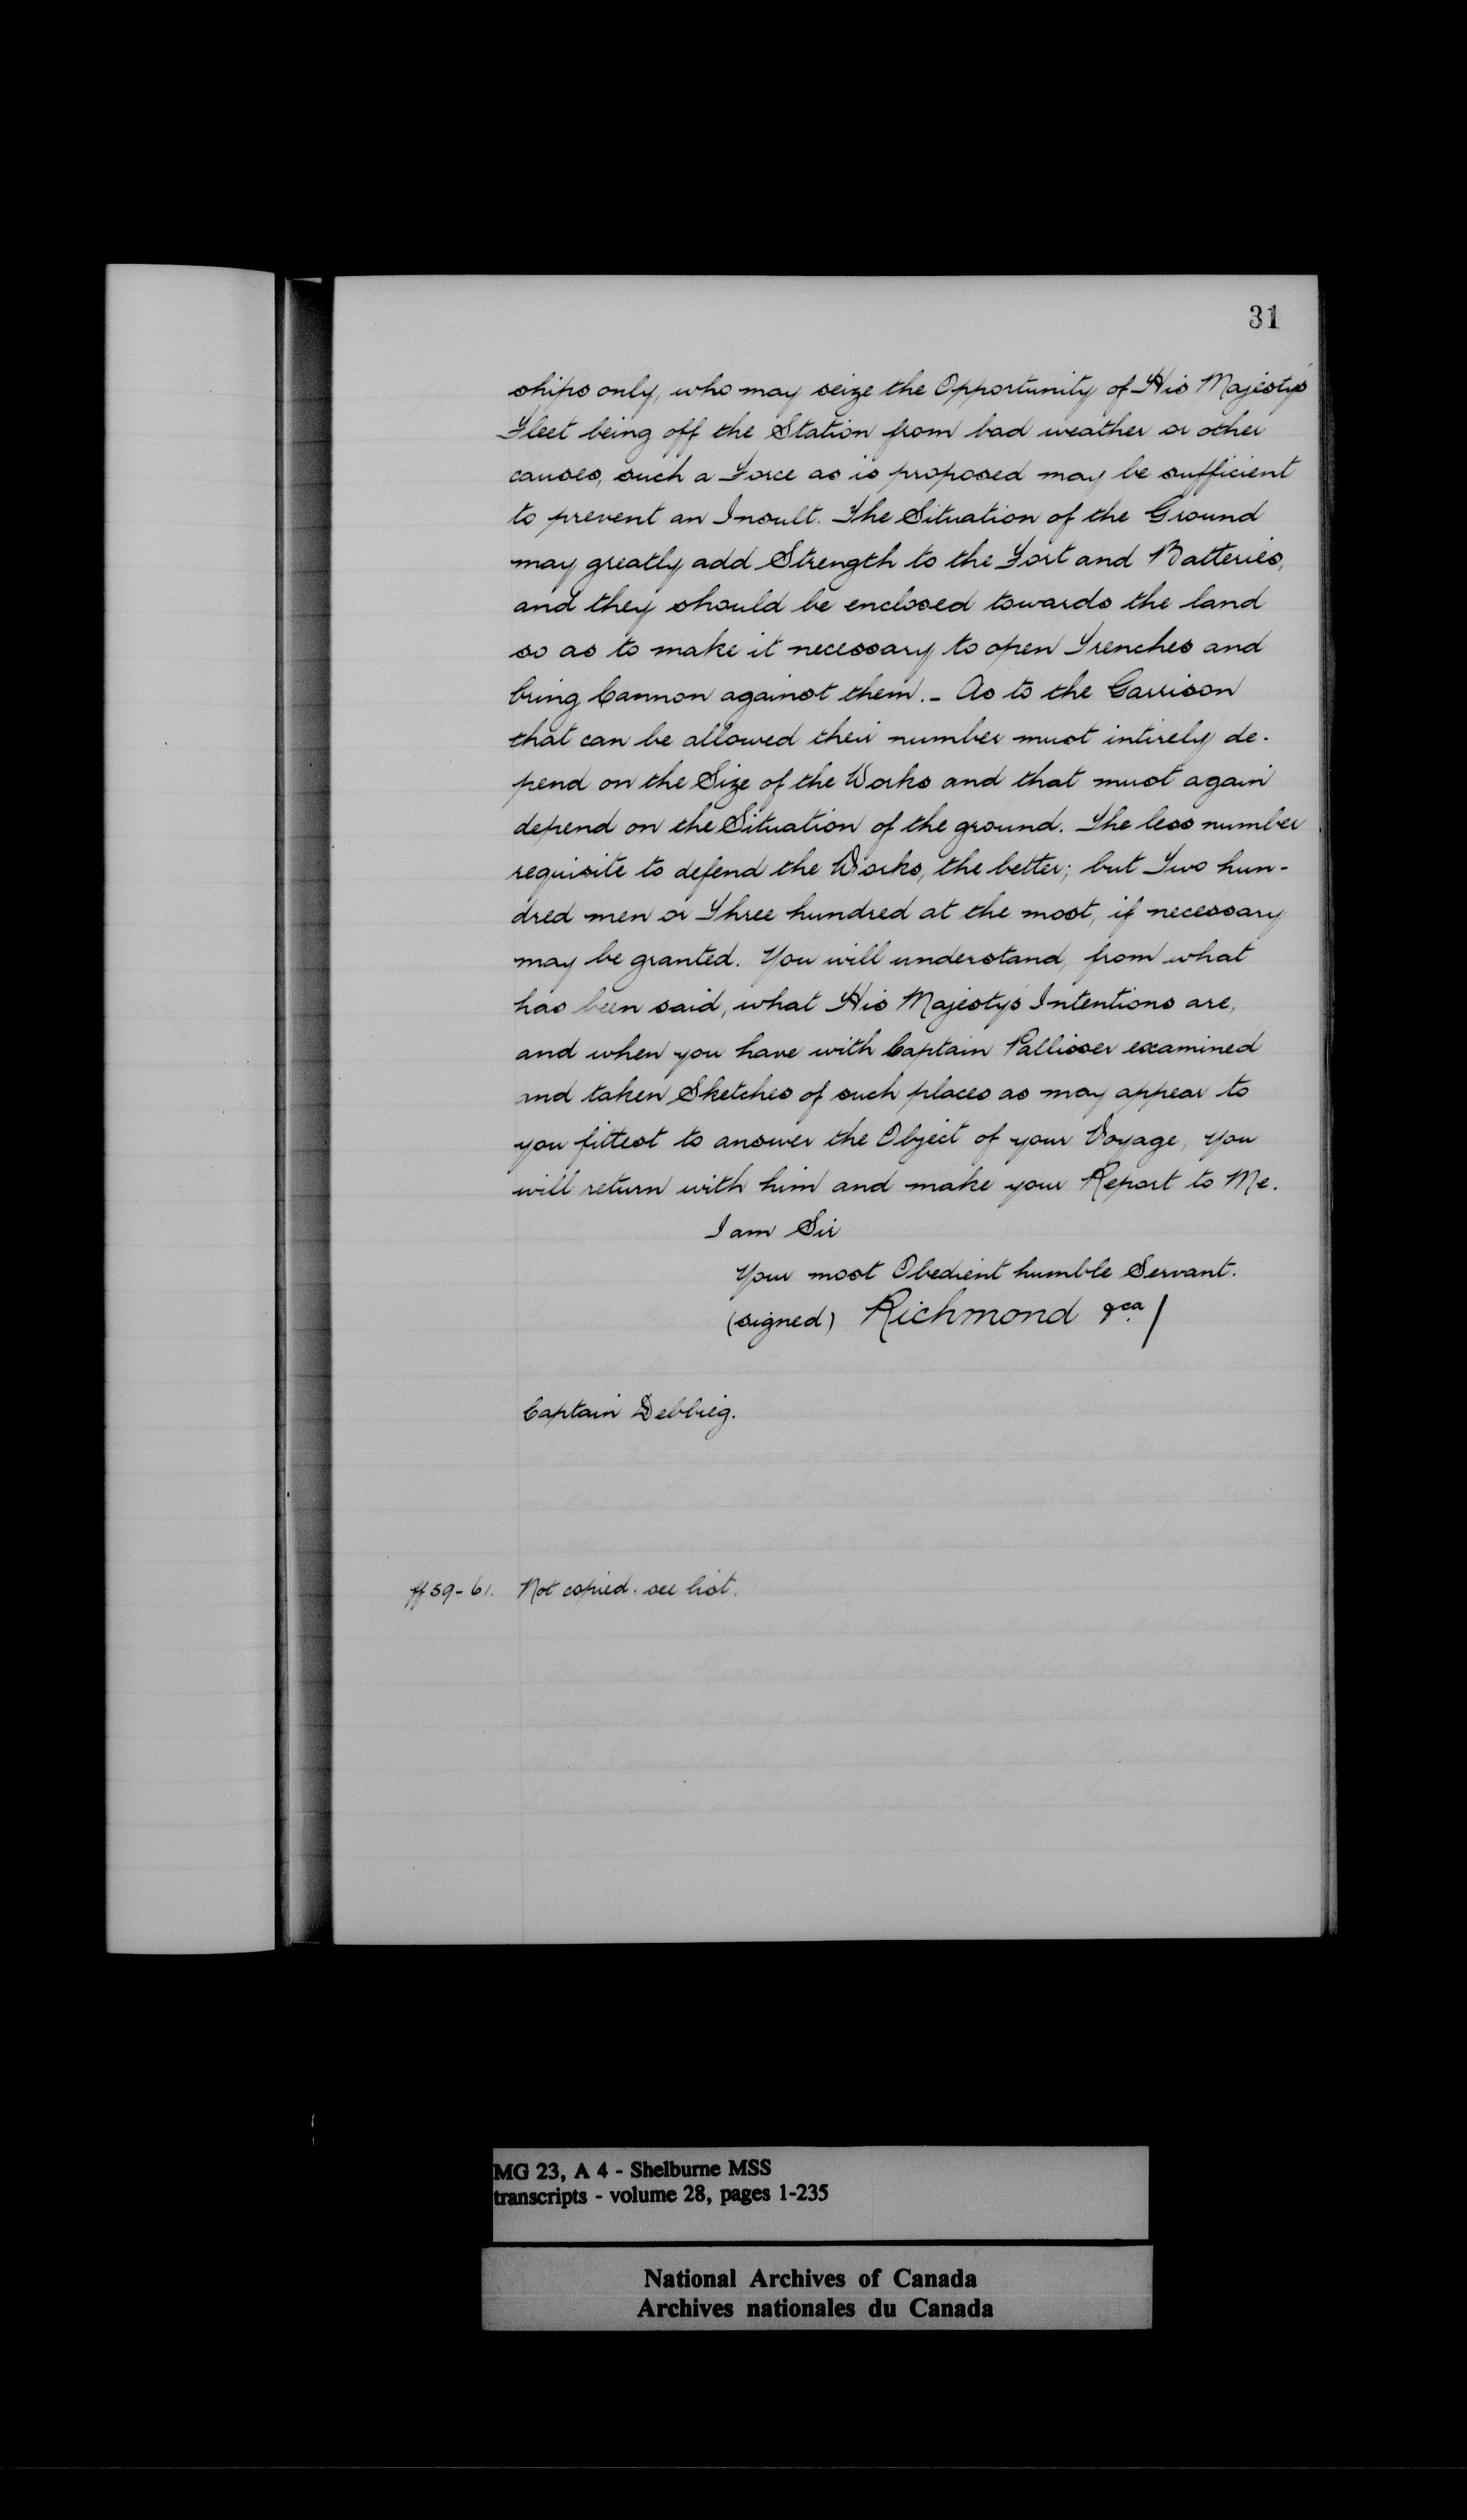 31
ships only, who may seize the Opportunity of His Majestys
Fleet being off the Station from bad weather or other
causes, such a Force as is proposed may be sufficient
to prevent an Insult. The Situation of the Ground
may greatly add Strength to the Fort and Batteries,
and they should be enclosed towards the land
so as to make it necessary to open Trenches and
bring Cannon against them. - As to the Garrison
that can be allowed their number must intirely de-
pend on the Size of the Works and that must again
depend on the Situation of the ground. The less number
requisite to defend the Works, the better; but Two hun-
dred men or Three hundred at the most, if necessary
may be granted. You will understand, from what
has been said, what His Majestys Intentions are,
and when you have with Captain Pallisser examined
and taken Sketches of such places as may appear to
you fittest to answer the Object of your Voyage, you
will return with him and make your Report to Me.
I am Sir
Your most Obedient humble Servant.
(signed) Richmond &ca /
Captain Debbieg.
ff 59-61. Not copied. see list.
MG 23, A 4 - Shelburne MSS
transcripts - volume 28, pages 1-235
National Archives of Canada
Archives nationales du Canada